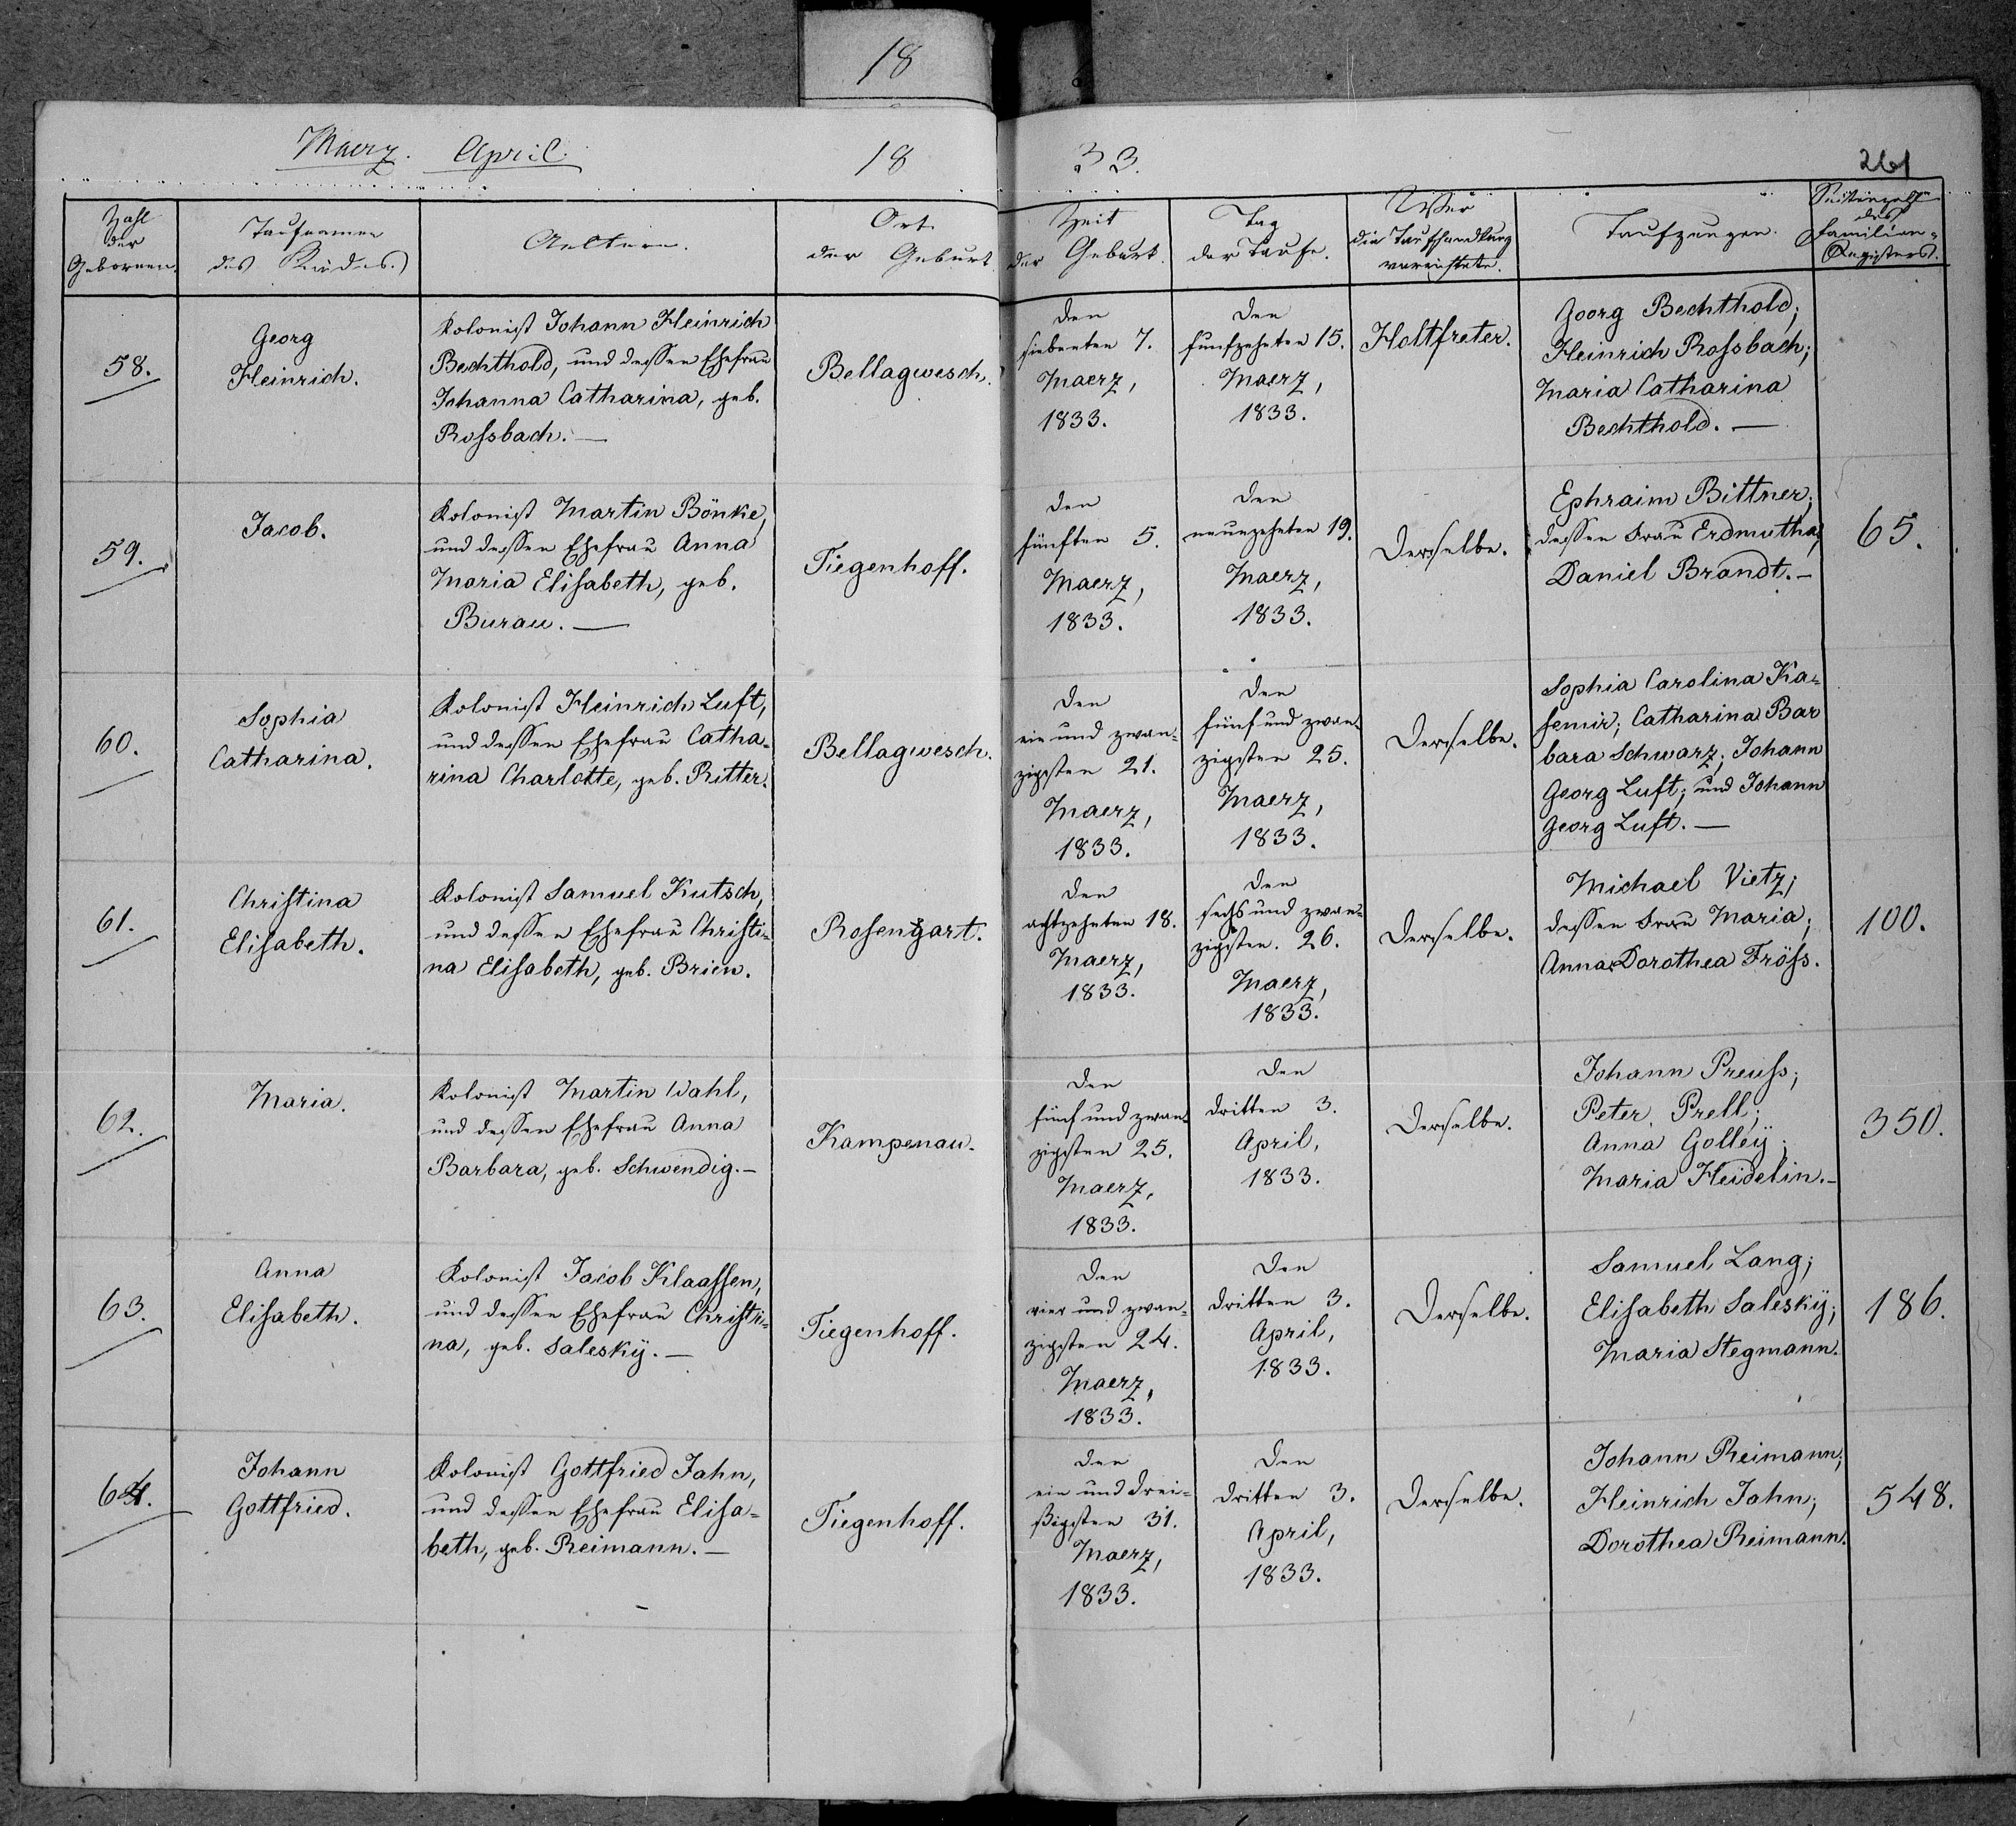 18
Maerz. April. 18 33. 261
Zahl der Gebornen.
Taufnamen des Kindes.
Aeltern.
Ort der Geburt.
Zeit der Geburt.
Tag der Taufe.
Wer die Taufhandlung verrichtete.
Taufzeugen.
Seitenzahl des Familien-Registers.
58.
Georg
Heinrich.
Kolonist Johann Heinrich
Bechthold, und dessen Ehefrau
Johanna Catharina, geb.
Rossbach. —
Bellagwesch.
den
siebenten 7.
Maerz,
1833.
den
funfzehnten 15.
Maerz,
1833.
Holtfreter.
Georg Bechthold;
Heinrich Rossbach;
Maria Catharina
Bechthold. —
59.
Jacob.
Kolonist Martin Bönke,
und dessen Ehefrau Anna
Maria Elisabeth, geb.
Burau. —
Tiegenhoff.
den
fünften 5.
Maerz,
1833.
den
neunzehnten 19.
Maerz,
1833.
Derselbe.
Ephraim Bittner;
dessen Frau Erdmutha;
Daniel Brandt. —
65.
60.
Sophia
Catharina.
Kolonist Heinrich Luft,
und dessen Ehefrau Catha-
rina Charlotte, geb. Ritter.
Bellagwesch.
den
ein und zwan-
zigsten 21.
Maerz,
1833.
den
fünf und zwan-
zigsten 25.
Maerz,
1833.
Derselbe.
Sophia Carolina Ka-
semir; Catharina Bar
bara Schwarz; Johann
Georg Luft; und Johann
Georg Luft. —
61.
Christina
Elisabeth.
Kolonist Samuel Kutsch,
und dessen Ehefrau Christi-
na Elisabeth, geb. Brien.
Rosengart.
den
achtzehnten 18.
Maerz,
1833.
den
sechs und zwan-
zigsten. 26.
Maerz,
1833.
Derselbe.
Michael Vietz;
dessen Frau Maria;
Anna Dorothea Fröss.
100.
62.
Maria.
Kolonist Martin Wahl,
und dessen Ehefrau Anna
Barbara, geb. Schwendig. —
Kampenau.
den
fünf und zwan-
zigsten 25.
Maerz,
1833.
den
dritten 3.
April,
1833.
Derselbe.
Johann Preuss;
Peter Prell;
Anna Golleÿ;
Maria Heidelin. —
350.
63.
Anna
Elisabeth.
Kolonist Jacob Klaassen,
und dessen Ehefrau Christi-
na, geb. Saleskÿ. —
Tiegenhoff.
den
vier und zwan-
zigsten 24.
Maerz,
1833.
den
dritten 3.
April,
1833.
Derselbe.
Samuel Lang;
Elisabeth Saleskÿ;
Maria Stegmann.
186.
64.
Johann
Gottfried.
Kolonist Gottfried Jahn,
und dessen Ehefrau Elisa-
beth, geb. Reimann. —
Tiegenhoff.
den
ein und drei-
ßigsten 31.
Maerz,
1833.
den
dritten 3.
April,
1833.
Derselbe.
Johann Reimann;
Heinrich Jahn;
Dorothea Reimann.
548.